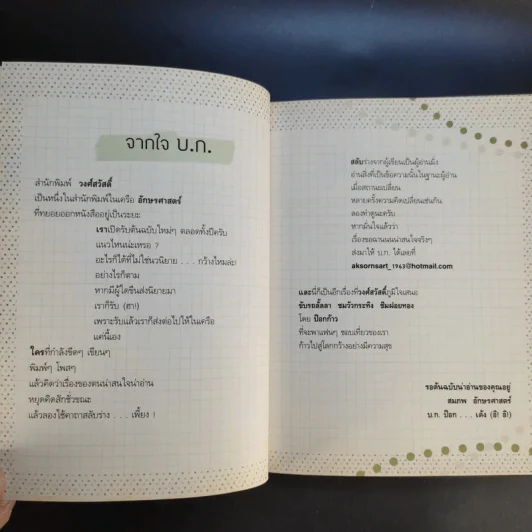 จากใจ บ.ก.
สำนักพิมพ์ วงศ์สวัสดิ์
เป็นหนึ่งในสำนักพิมพ์ในเครือ อักษรศาสตร์
ที่ทยอยออกหนังสืออยู่เป็นระยะ
เราเปิดรับต้นฉบับใหม่ๆ ตลอดทั้งปีครับ
แนวไหนน่ะเหรอ ?
อะไรก็ได้ที่ไม่ใช่นวนิยาย . . . กว้างไหมล่ะ!
อย่างไรก็ตาม
หากมีผู้ใดขืนส่งนิยายมา
เราก็รับ (ฮา!)
เพราะรับแล้วเราก็ส่งต่อไปให้ในเครือ
แค่นี้เอง
ใครที่กำลังขีดๆ เขียนๆ
พิมพ์ๆ โพสๆ
แล้วคิดว่าเรื่องของตนน่าสนใจน่าอ่าน
หยุดคิดสักชั่วขณะ
แล้วลองใช้คาถาสลับร่าง . . . เพี้ยง !
สลับร่างจากผู้เขียนเป็นผู้อ่านมั่ง
อ่านสิ่งที่เป็นข้อความนั้นในฐานะผู้อ่าน
เมื่อสถานะเปลี่ยน
หลายครั้งความคิดเปลี่ยนเช่นกัน
ลองทำดูนะครับ
หากมั่นใจแล้วว่า
เรื่องของฉานนนน่าสนใจจริงๆ
ส่งมาให้ บ.ก. ได้เลยที่
aksornsart_1963@hotmail.com
และนี่ก็เป็นอีกเรื่องที่วงศ์สวัสดิ์ภูมิใจเสนอ
ขับรถลั้ลลา ชมวิวกระทิง ชิมฝอยทอง
โดย ป๊อกก้าว
ที่จะพาแฟนๆ ชอบเที่ยวของเรา
ก้าวไปสู่โลกกว้างอย่างมีความสุข
รอต้นฉบับน่าอ่านของคุณอยู่
สมภพ อักษรศาสตร์
บ.ก. ป๊อก . . . เด้ง (ฮิ! ฮิ!)